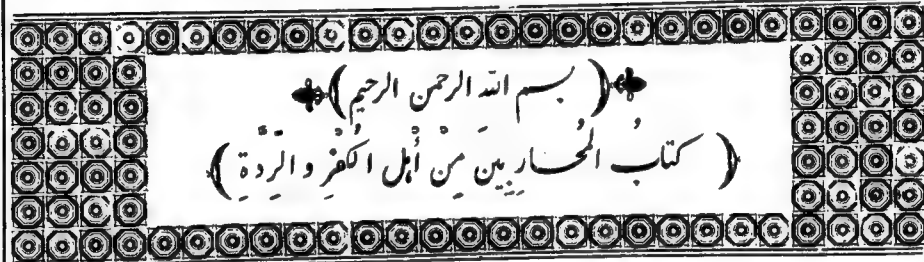 ﴿ بسم الله الرحمن الرحيم ﴾
﴿ كتابُ المُحاربِين مِنْ أَهْلِ الكُفْرِ والرِّدَّةِ ﴾